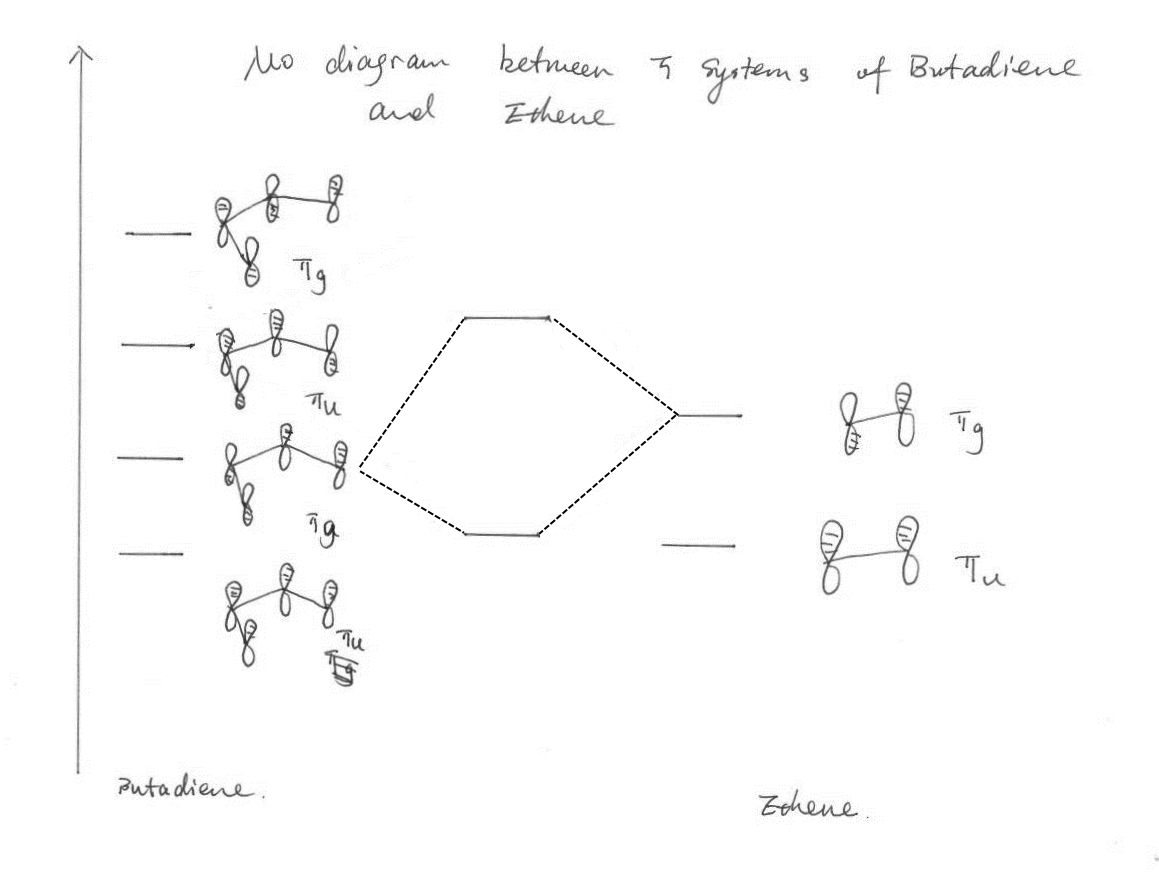 MO diagram between π systems of Butadiene
and Ethene
πg
πu
πg
πg
πu
πu
Butadiene.
Ethene.